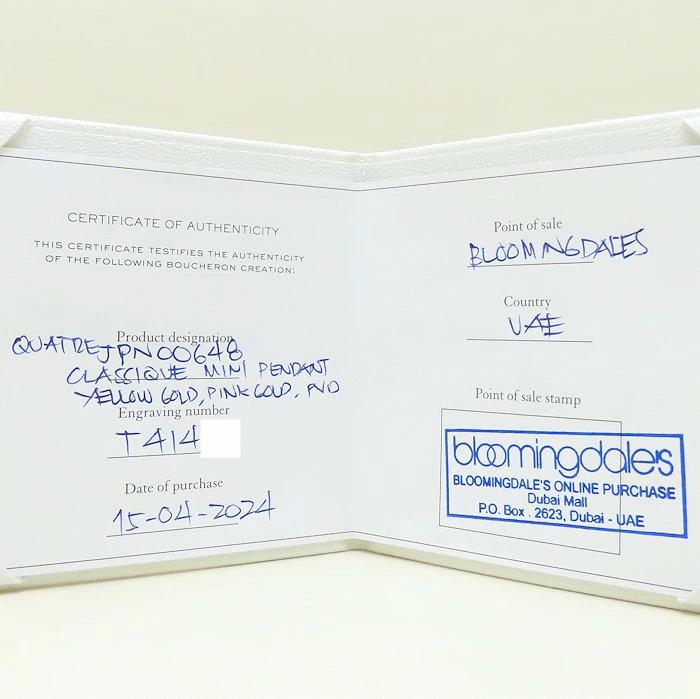 CERTIFICATE OF AUTHENTICITY
THIS CERTIFICATE TESTIFIES THE AUTHENTICITY
OF THE FOLLOWING BOUCHERON CREATION:
Product designation
QUATRE JPN00648
CLASSIQUE MINI PENDANT
YELLOW GOLD, PINK GOLD, PVD
Engraving number
T414
Date of purchase
15-04-2024
Point of sale
BLOOMINGDALES
Country
UAE
Point of sale stamp
bloomingdale's
BLOOMINGDALE'S ONLINE PURCHASE
Dubai Mall
P.O. Box . 2623, Dubai - UAE